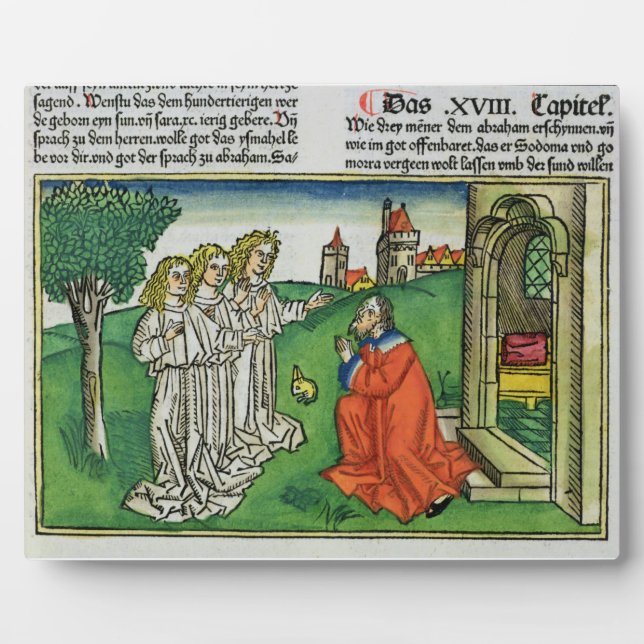 sagend. Wenstu das dem hundertierigen wer
de geborn eyn sun. vñ sara, ꝛc. ierig gebere. Vñ
sprach zu dem herren. wolte got das ysmahel le
be vor dir. vnd got der sprach zu abraham. Sa⸗
Das .XVIII. Capitel.
Wie drey mẽner dem abraham erschynnen. vñ
wie im got offenbaret. das er Sodoma vnd go
morra vergeen wolt lassen vmb der sund willen